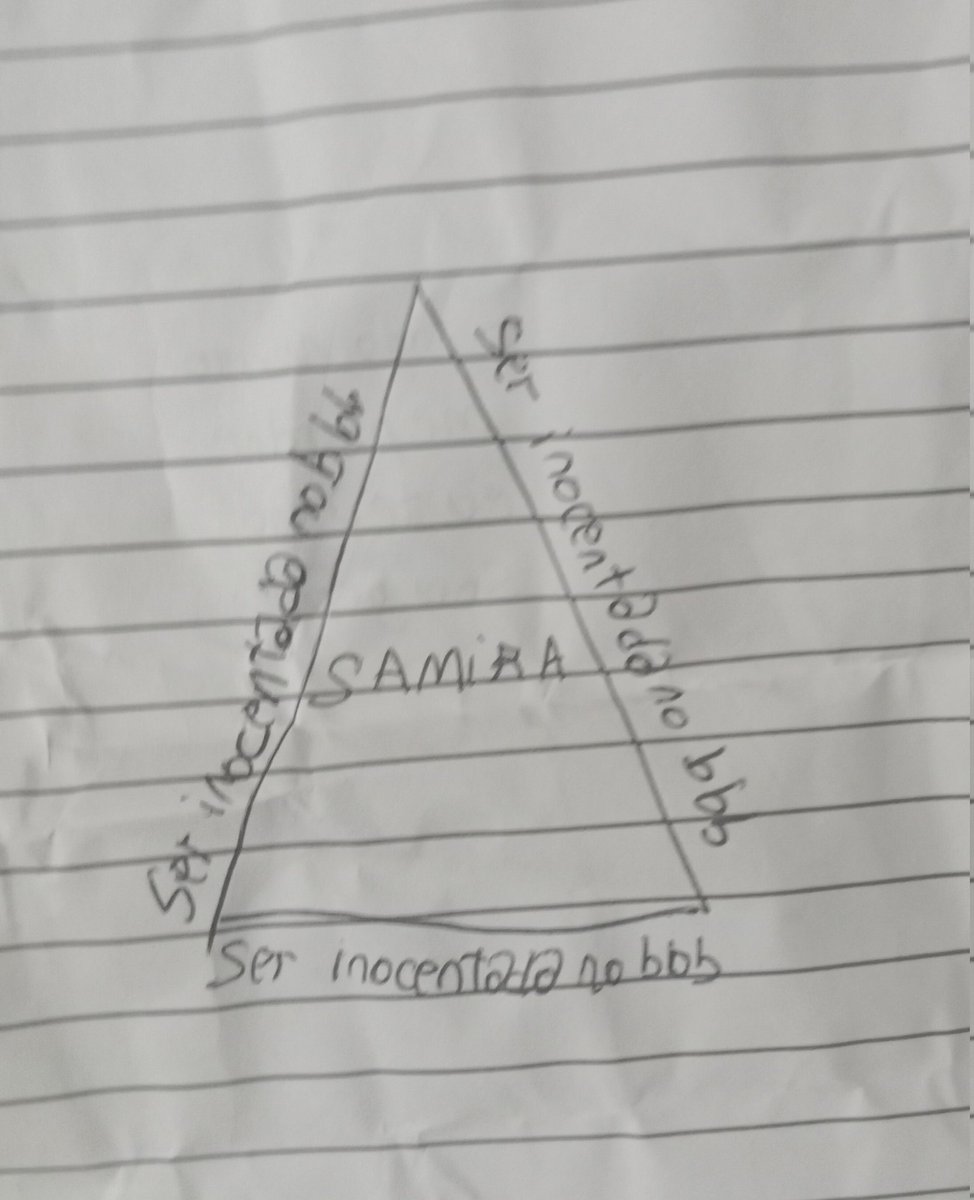 Ser inocentada no bbb
Ser inocentada no bbb
SAMiRA
Ser inocentada no bbb